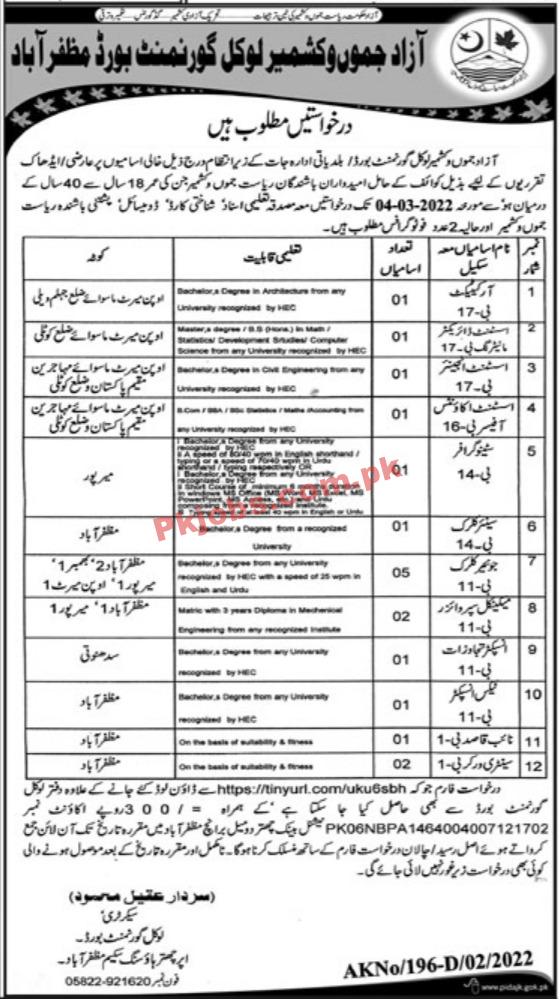 آزاد جموں و کشمیر لوکل گورنمنٹ بورڈ مظفر آباد
درخواستیں مطلوب ہیں
آزاد جموں و کشمیر لوکل گورنمنٹ بورڈ / بلدیاتی ادارہ جات کے زیر انتظام درج ذیل خالی اسامیوں پر عارضی / ایڈھاک
تقرریوں کے لیے بذیل کوائف کے حامل امیدواران باشندگان ریاست جموں و کشمیر جن کی عمر 18 سال سے 40 سال کے
درمیان ہو سے مورخہ 04-03-2022 تک درخواستیں معہ مصدقہ تعلیمی اسناد، شناختی کارڈ، ڈومیسائل، پشتنی باشندہ ریاست
جموں و کشمیر اور حالیہ 2 عدد فوٹوگرافس مطلوب ہیں۔
نمبر شمار	نام اسامیاں معہ سکیل	تعداد اسامیاں	تعلیمی قابلیت	کوٹہ
1	آرکیٹیکٹ بی-17	01	Bachelor,s Degree in Architecture from any University recognized by HEC	اوپن میرٹ ماسوائے ضلع جہلم ویلی
2	اسسٹنٹ ڈائریکٹر مانیٹرنگ بی-17	01	Master,s degree / B.S (Hons.) In Math / Statistics/ Development Srtudies/ Computer Science from any University recognized by HEC	اوپن میرٹ ماسوائے ضلع کوٹلی
3	اسسٹنٹ انجینئر بی-17	01	Bachelor,s Degree in Civil Engineering from any University recognized by HEC	اوپن میرٹ ماسوائے مہاجرین مقیم پاکستان و ضلع کوٹلی
4	اسسٹنٹ اکاؤنٹس آفیسر بی-16	01	B.Com / BBA / BSc Statistics / Maths /Accounting from any University recognized by HEC	اوپن میرٹ ماسوائے مہاجرین مقیم پاکستان و ضلع کوٹلی
5	سٹینوگرافر بی-14	01	i Bachelor,s Degree from any University recognized by HEC
ii A speed of 80/40 wpm in English shorthand / typing or a speed of 70/40 wpm in Urdu shorthand / typing respectively OR
i Bachelor,s Degree from any University recognized by HEC
ii Short Course of minimum 6 months duration in windows MS Office (MS Word, MS Excel, MS PowerPoint, MS Access, etc) and Urdu composing from any recognized institute.
iii Typing 40 wpm in English or Urdu	میرپور
6	سینئر کلرک بی-14	01	Bachelor,s Degree from a recognized University	مظفر آباد
7	جونیئر کلرک بی-11	05	Bachelor,s Degree from any University recognized by HEC with a speed of 25 wpm in English and Urdu	مظفر آباد 2، بھمبر 1، میرپور 1، اوپن میرٹ 1
8	میکینیکل سپروائزر بی-11	02	Matric with 3 years Diploma in Mechenical Engineering from any recognized Institute	مظفر آباد 1، میرپور 1
9	انسپکٹر تجاوزات بی-11	01	Bachelor,s Degree from any University recognized by HEC	سدھنوتی
10	ٹیکس انسپکٹر بی-11	01	Bachelor,s Degree from any University recognized by HEC	مظفر آباد
11	نائب قاصد بی-1	01	On the basis of suitability & fitness	مظفر آباد
12	سینٹری ورکر بی-1	02	On the basis of suitability & fitness	مظفر آباد
Pkjobs.com.pk
درخواست فارم جو کہ https://tinyurl.com/uku6sbh سے ڈاؤن لوڈ کئے جانے کے علاوہ دفتر لوکل
گورنمنٹ بورڈ سے بھی حاصل کیا جا سکتا ہے کے ہمراہ =/300 روپے اکاؤنٹ نمبر
PK06NBPA1464004007121702 نیشنل بینک چھتر دومیل برانچ مظفر آباد میں مقررہ تاریخ تک آن لائن جمع
کرواتے ہوئے اصل رسید / چالان درخواست فارم کے ساتھ منسلک کرنا ہوگا۔ نامکمل اور مقررہ تاریخ کے بعد موصول ہونے والی
کوئی بھی درخواست زیر غور نہیں لائی جائے گی۔
(سردار عقیل محمود)
سیکرٹری
لوکل گورنمنٹ بورڈ۔
اپر چھتر ہاؤسنگ سکیم مظفر آباد۔
فون نمبر 05822-921620
AKNo/196-D/02/2022
www.pidajk.gok.pk